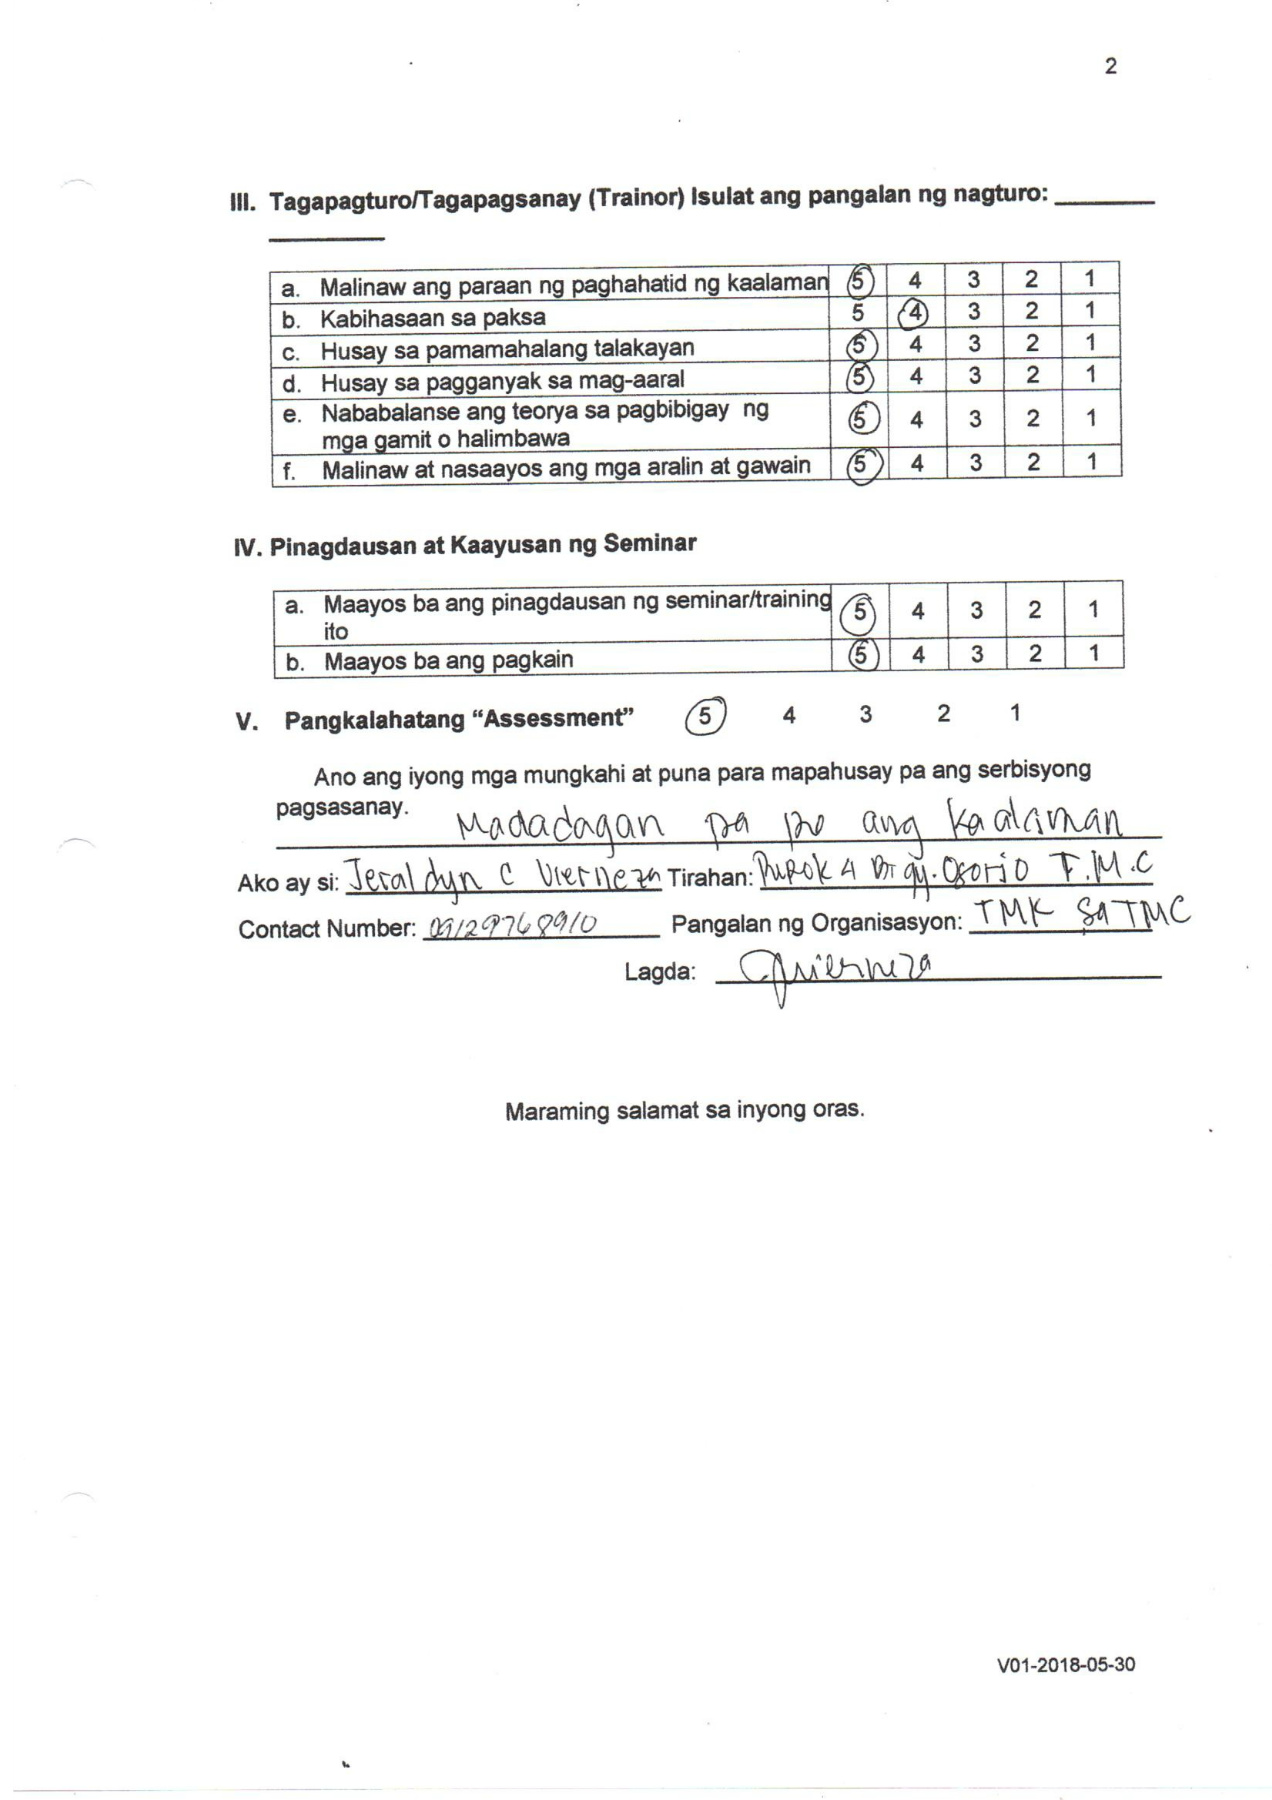 2
III. Tagapagturo/Tagapagsanay (Trainor) Isulat ang pangalan ng nagturo: ________
________
a. Malinaw ang paraan ng paghahatid ng kaalaman 5 4 3 2 1
b. Kabihasaan sa paksa 5 4 3 2 1
c. Husay sa pamamahalang talakayan 5 4 3 2 1
d. Husay sa pagganyak sa mag-aaral 5 4 3 2 1
e. Nababalanse ang teorya sa pagbibigay ng
mga gamit o halimbawa 5 4 3 2 1
f. Malinaw at nasaayos ang mga aralin at gawain 5 4 3 2 1
IV. Pinagdausan at Kaayusan ng Seminar
a. Maayos ba ang pinagdausan ng seminar/training
ito 5 4 3 2 1
b. Maayos ba ang pagkain 5 4 3 2 1
V. Pangkalahatang “Assessment” 5 4 3 2 1
Ano ang iyong mga mungkahi at puna para mapahusay pa ang serbisyong
pagsasanay. Madadagan pa po ang kaalaman
Ako ay si: Jeraldyn C Vierneza Tirahan: Purok 4 Brgy. Osorio T.M.C
Contact Number: 09129768910 Pangalan ng Organisasyon: TMK sa TMC
Lagda: Vierneza
Maraming salamat sa inyong oras.
V01-2018-05-30